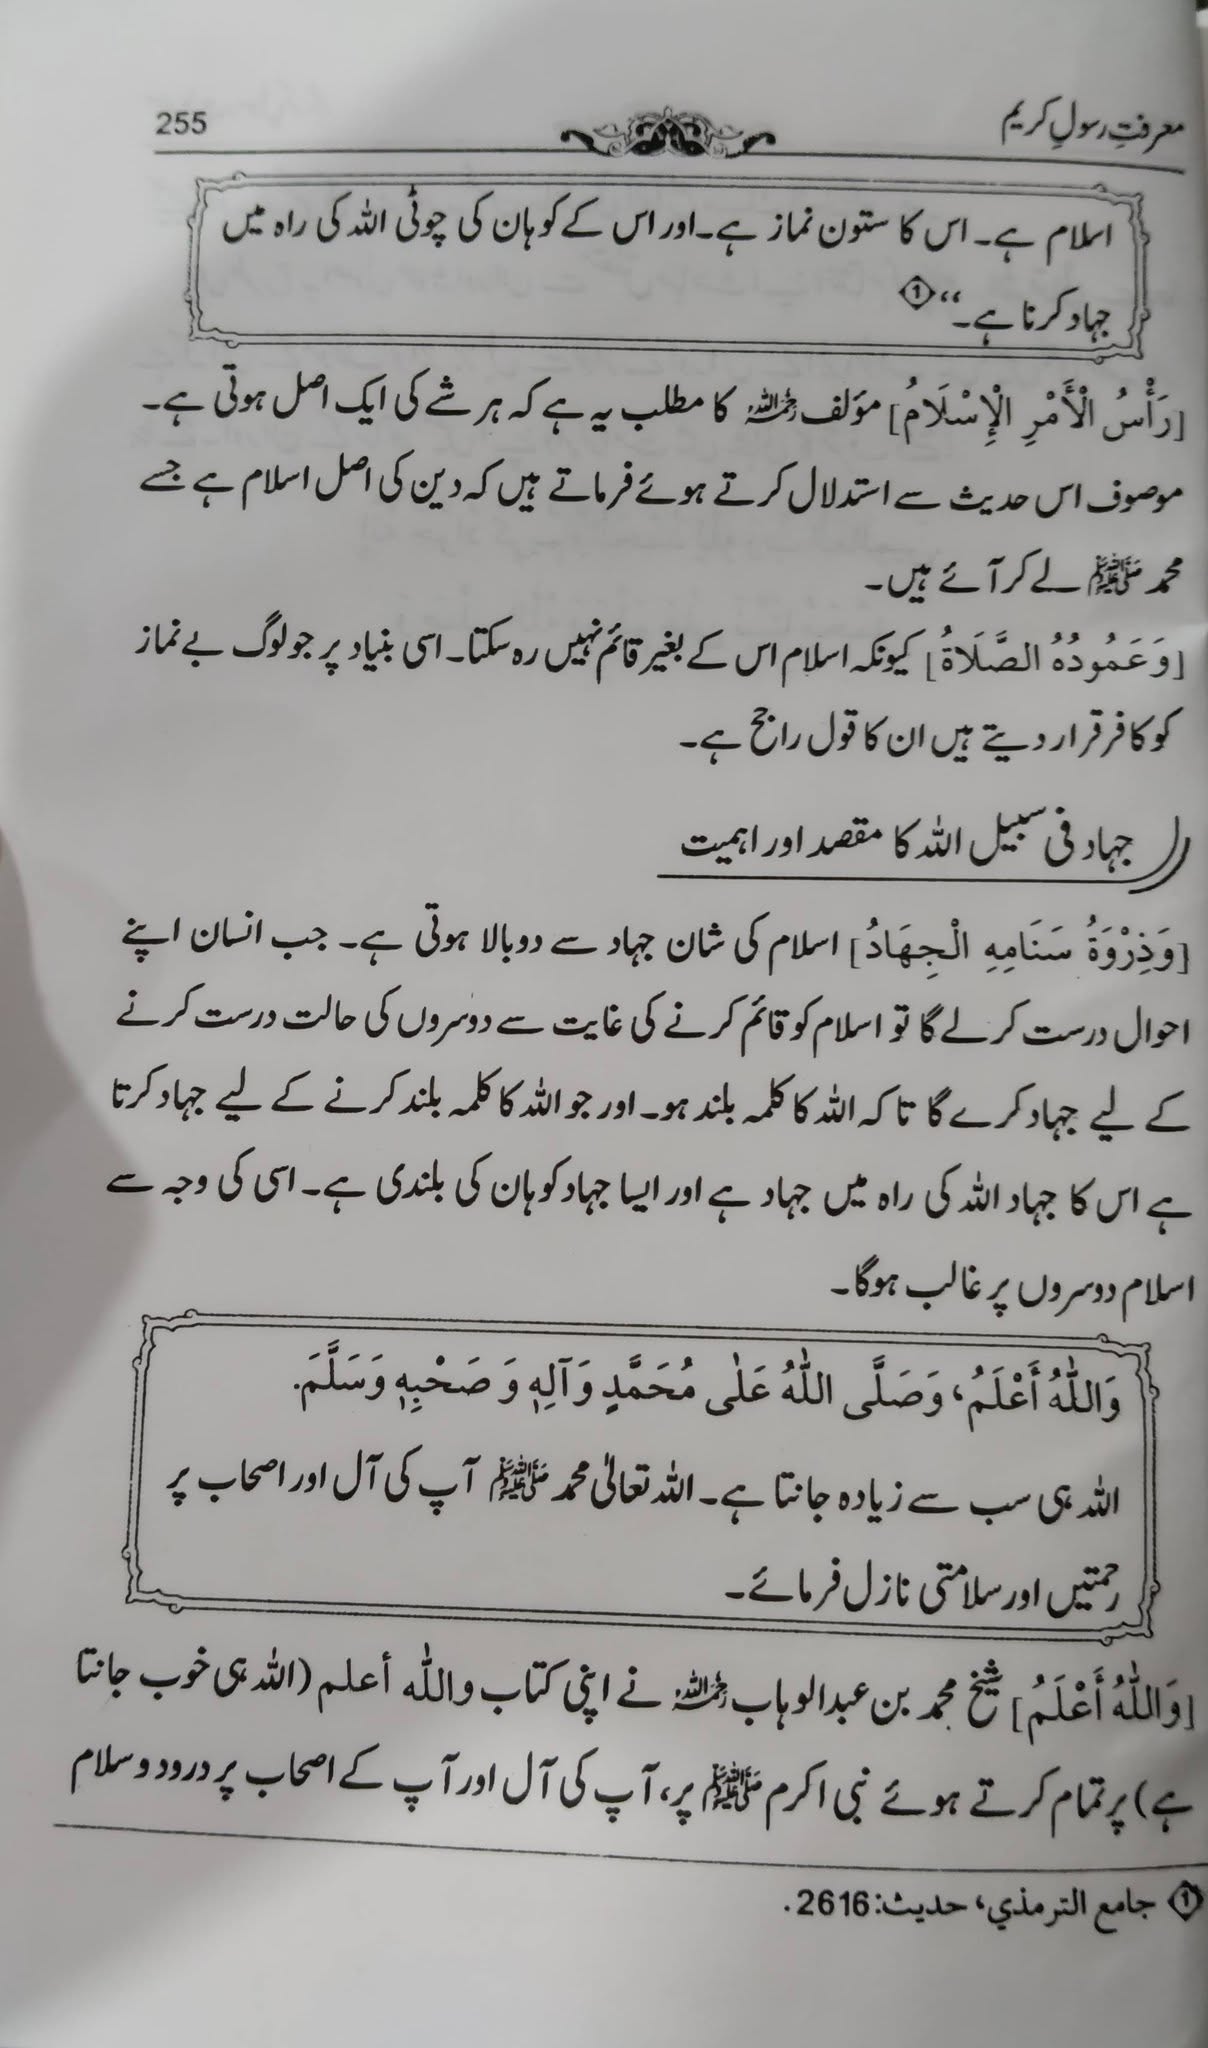 معرفتِ رسولِ کریم 255
اسلام ہے۔ اس کا ستون نماز ہے۔ اور اس کے کوہان کی چوٹی اللہ کی راہ میں
جہاد کرنا ہے۔‘‘ ①
[رَأْسُ الْأَمْرِ الْإِسْلَامُ] مؤلف رحمہ اللہ کا مطلب یہ ہے کہ ہر شے کی ایک اصل ہوتی ہے۔
موصوف اس حدیث سے استدلال کرتے ہوئے فرماتے ہیں کہ دین کی اصل اسلام ہے جسے
محمد ﷺ لے کر آئے ہیں۔
[وَعَمُودُهُ الصَّلَاةُ] کیونکہ اسلام اس کے بغیر قائم نہیں رہ سکتا۔ اسی بنیاد پر جو لوگ بے نماز
کو کافر قرار دیتے ہیں ان کا قول راجح ہے۔
جہاد فی سبیل اللہ کا مقصد اور اہمیت
[وَذِرْوَةُ سَنَامِهِ الْجِهَادُ] اسلام کی شان جہاد سے دوبالا ہوتی ہے۔ جب انسان اپنے
احوال درست کر لے گا تو اسلام کو قائم کرنے کی غایت سے دوسروں کی حالت درست کرنے
کے لیے جہاد کرے گا تاکہ اللہ کا کلمہ بلند ہو۔ اور جو اللہ کا کلمہ بلند کرنے کے لیے جہاد کرتا
ہے اس کا جہاد اللہ کی راہ میں جہاد ہے اور ایسا جہاد کوہان کی بلندی ہے۔ اسی کی وجہ سے
اسلام دوسروں پر غالب ہوگا۔
وَاللّٰهُ أَعْلَمُ، وَصَلَّى اللّٰهُ عَلٰى مُحَمَّدٍ وَآلِهٖ وَ صَحْبِهٖ وَسَلَّمَ.
اللہ ہی سب سے زیادہ جانتا ہے۔ اللہ تعالیٰ محمد ﷺ آپ کی آل اور اصحاب پر
رحمتیں اور سلامتی نازل فرمائے۔
[وَاللّٰهُ أَعْلَمُ] شیخ محمد بن عبدالوہاب رحمہ اللہ نے اپنی کتاب واللّٰه أعلم (اللہ ہی خوب جانتا
ہے) پر تمام کرتے ہوئے نبی اکرم ﷺ پر، آپ کی آل اور آپ کے اصحاب پر درود و سلام
① جامع الترمذي، حديث: 2616.